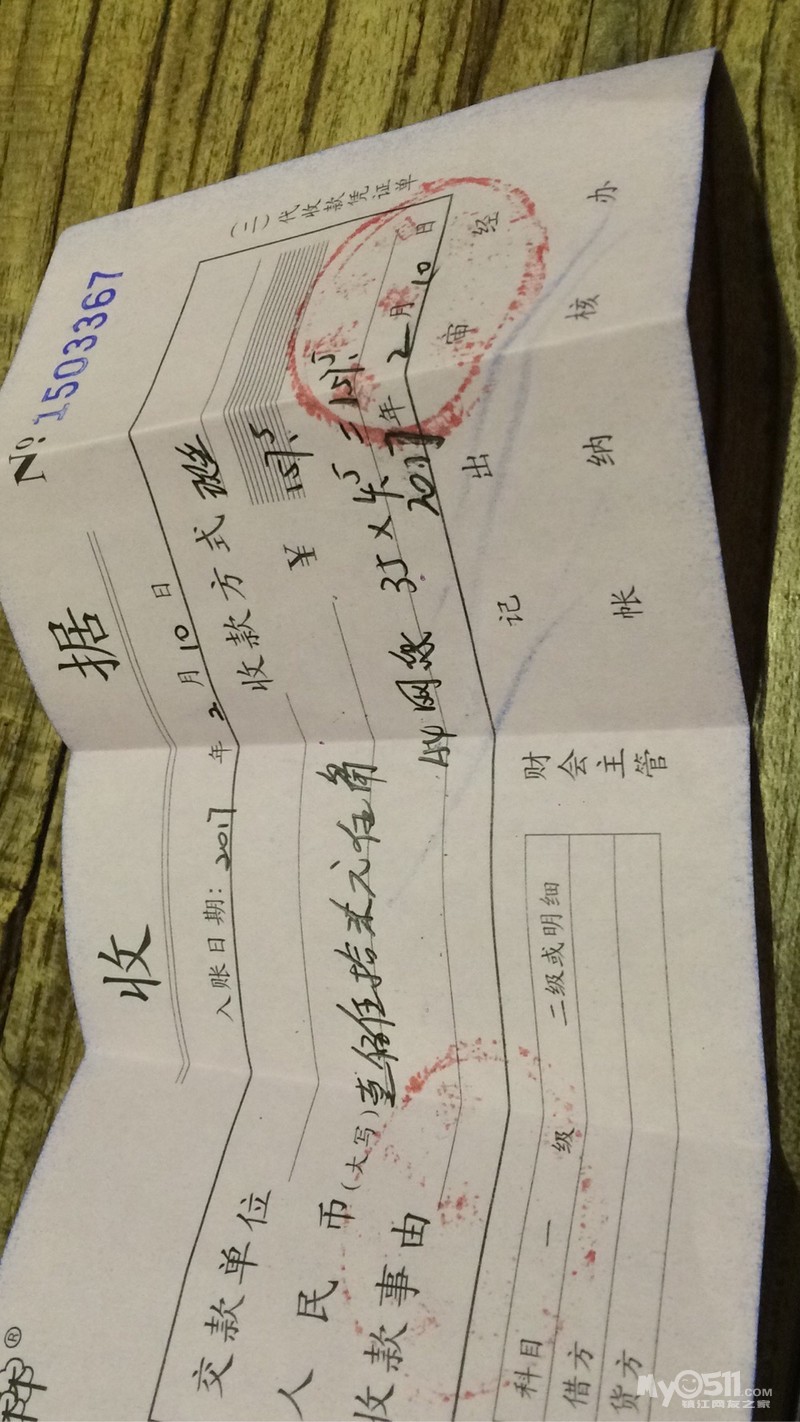 收 据
№ 1503367
入账日期：2017 年 2 月 10 日
交款单位
收款方式
人民币（大写）壹佰伍拾柒元伍角
￥ 157.5
收款事由
网线 35×4.5=157.5
2017 年 2 月 10 日
（三）代收款凭证单
财会主管
记帐
出纳
审核
经办
科目 一级 二级或明细
借方
贷方
My0511.COM
镇江网友之家